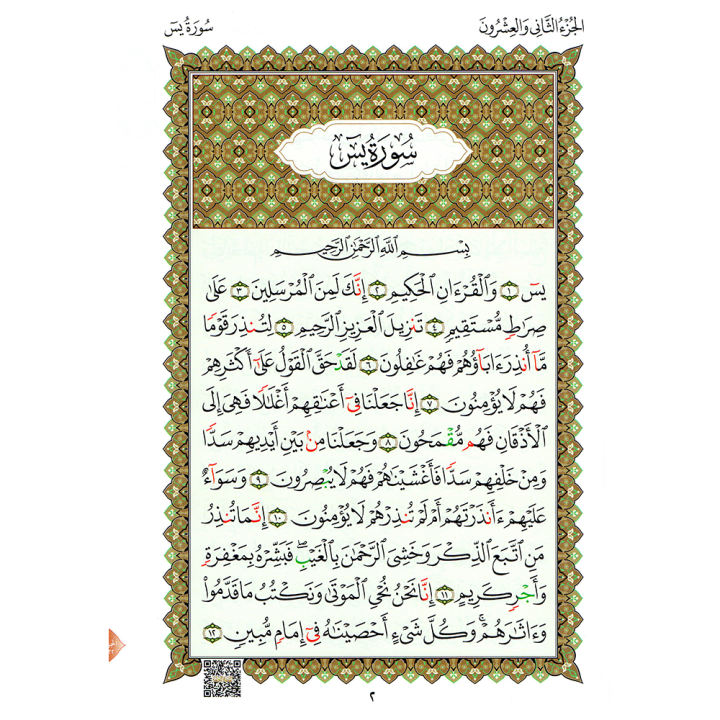 الجُزْءُ الثَّانِى وَالعِشْرُونَ
سُورَةُ يسٓ
سُورَةُ يسٓ
بِسْمِ ٱللَّهِ ٱلرَّحْمَٰنِ ٱلرَّحِيمِ
يسٓ ١ وَٱلْقُرْءَانِ ٱلْحَكِيمِ ٢ إِنَّكَ لَمِنَ ٱلْمُرْسَلِينَ ٣ عَلَىٰ
صِرَٰطٍ مُّسْتَقِيمٍ ٤ تَنزِيلَ ٱلْعَزِيزِ ٱلرَّحِيمِ ٥ لِتُنذِرَ قَوْمًا
مَّآ أُنذِرَ ءَابَآؤُهُمْ فَهُمْ غَٰفِلُونَ ٦ لَقَدْ حَقَّ ٱلْقَوْلُ عَلَىٰٓ أَكْثَرِهِمْ
فَهُمْ لَا يُؤْمِنُونَ ٧ إِنَّا جَعَلْنَا فِىٓ أَعْنَٰقِهِمْ أَغْلَٰلًا فَهِىَ إِلَى
ٱلْأَذْقَانِ فَهُم مُّقْمَحُونَ ٨ وَجَعَلْنَا مِنۢ بَيْنِ أَيْدِيهِمْ سَدًّا
وَمِنْ خَلْفِهِمْ سَدًّا فَأَغْشَيْنَٰهُمْ فَهُمْ لَا يُبْصِرُونَ ٩ وَسَوَآءٌ
عَلَيْهِمْ ءَأَنذَرْتَهُمْ أَمْ لَمْ تُنذِرْهُمْ لَا يُؤْمِنُونَ ١٠ إِنَّمَا تُنذِرُ
مَنِ ٱتَّبَعَ ٱلذِّكْرَ وَخَشِىَ ٱلرَّحْمَٰنَ بِٱلْغَيْبِ ۖ فَبَشِّرْهُ بِمَغْفِرَةٍ
وَأَجْرٍ كَرِيمٍ ١١ إِنَّا نَحْنُ نُحْىِ ٱلْمَوْتَىٰ وَنَكْتُبُ مَا قَدَّمُوا۟
وَءَاثَٰرَهُمْ ۚ وَكُلَّ شَىْءٍ أَحْصَيْنَٰهُ فِىٓ إِمَامٍ مُّبِينٍ ١٢
٢